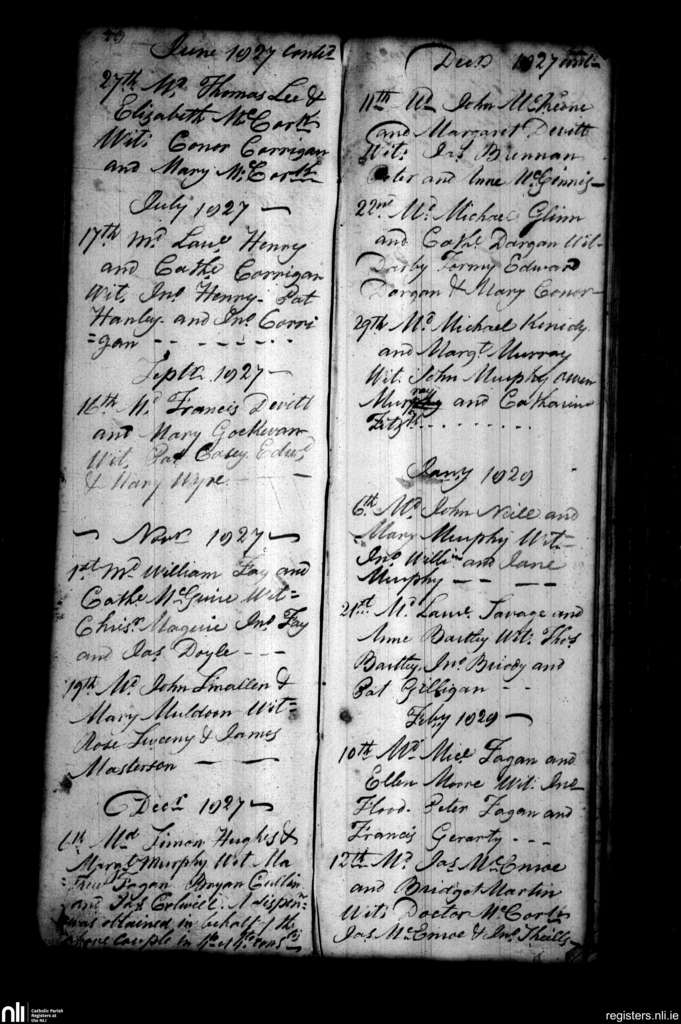 June 1827 Contd
27th Md Thomas Lee &
Elizabeth McCork
Wit: Conor Corrigan
and Mary McCork
July 1827 —
17th Md Lawe Henry
and Cathe Corrigan
Wit, Jno Henry. Pat
Hanley. and Jno Corri
=gan - - - - - - -
Septr 1827 —
16th Md Francis Devitt
and Mary
Wit, Pat Casey. Edwd
& Mary Wyre
— Novr 1827 —
1st Md William Fay and
Cathe McGuire Wit=
Chrisr Maguire Jno Fay
and Jas Doyle - - -
19th Md John Smallen &
Mary Muldoon Wit=
Rose Sweeny & James
Masterson — — —
Decr 1827 —
6th Md Simon Hughes &
Margt Murphy Wit Ma
Fagan Bryan Cullin
and Jas A dispen=
was obtained in behalf of the
above couple in
Decr 1827 cont=
11th Md John
and Margaret Devitt
Wit: Jas Brennan
Peter and Anne McGinnis —
22nd Md Michael Glinn
and Cathe Dargan Wit=
Darby Edward
Dargan & Mary Conor
29th Md Michael Kenidy
and Margt Murray
Wit. John Murphy, Owen
Murray and Catharine
- - - - - - -
Jany 1828
6th Md John Neill and
Mary Murphy Wit=
Jno and Jane
Murphy — — —
21st Md Lawe Savage and
Anne Bartley Wit: Thos
Bartley. Jno Briody and
Pat Gilligan - -
Feby 1828 —
10th Md Micl Fagan and
Ellen Moore Wit: Jno
Flood. Peter Fagan and
Francis Gerarty - - -
12th Md Jas McEnroe
and Bridget Martin
Wit: Doctor McCork
Jas McEnroe & Jno
nli
Catholic Parish
Registers at
the NLI
registers.nli.ie